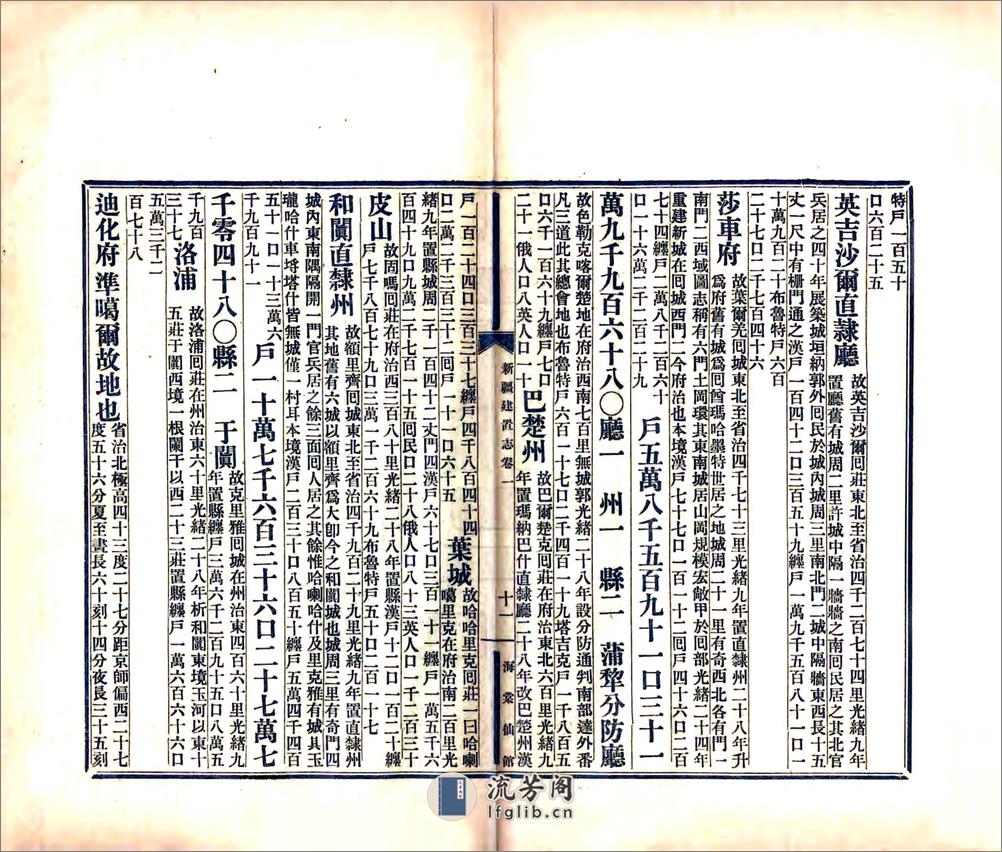 特戶一百五十
口六百二十五
英吉沙爾直隸廳
故英吉沙爾囘莊東北至省治四千二百七十四里光緒九年
置廳舊有城周二里許城中隔一牆牆之南囘民居之其北官
兵居之四十年展築城垣納郭外囘民於城內城周三里南北門二城中隔牆東西長十五
丈一尺中有柵門通之漢戶一百四十二口三百五十九纏戶一萬九千五百八十一口一
十萬九百二十布魯特戶六百
二十七口二千七百四十六
莎車府
故葉爾羌囘城東北至省治四千七十三里光緒九年置直隸州二十八年升
為府舊有城為囘酋瑪哈墨特世居之地城周二十一里有奇西北各有門一
南門二西域圖志稱有六門土岡環其東南城居山岡規模宏敞甲於囘部光緒二十四年
重建新城在囘城西門二今府治也本境漢戶七十七口一百一十二囘戶四十六口二百
七十四纏戶二萬八千二百六十
口一十六萬二千二百二十九
戶五萬八千五百九十一口三十一
萬九千九百六十八〇廳一 州一 縣二 蒲犂分防廳
故色勒克喀爾楚地在府治西南七百里無城郭光緒二十八年設分防通判南部達外番
凡三道此其總會地也布魯特戶六百一十七口二千四百一十九塔吉克戶一千八百五
口六千一百六十九纏戶七口
二十一俄人口八英人口一十
巴楚州
故巴爾楚克囘莊在府治東北六百里光緒九
年置瑪納巴什直隸廳二十八年改巴楚州漢
新疆建置志卷一
十一
海棠仙館
戶一百二十四口三百三十七纏戶四千八百四十四
口二萬二千三百三十二囘戶一十一口六十五
葉城
故哈哈里克囘莊一曰哈喇
噶里克在府治南二百里光
緒九年置縣城周二千一百四十二丈門四漢戶六十七口三百一十一纏戶一萬五千六
百四十九口九萬二千七百一十五囘民口二十八俄人口八十三英人口一千二百三十
皮山
故固嗎囘莊在府治西三百八十里光緒二十八年置縣漢戶十二口一百二十纏
戶七千八百七十九口三萬一千二百六十九布魯特戶五十口二百一十七
和闐直隸州
故額里齊囘城東北至省治四千九百二十九里光緒九年置直隸州
其地舊有六城以額里齊為大卽今之和闐城也城周三里有奇門四
城內東南隅隔開一門官兵居之餘三面囘人居之其餘惟哈喇哈什及里克雅有城其玉
瓏哈什車埓塔什皆無城僅一村耳本境漢戶二百三十口八百五十纏戶五萬四千四百
五十一口一十三萬六
千九百九十一
戶一十萬七千六百三十六口二十七萬七
千零四十八〇縣二 于闐
故克里雅囘城在州治東四百六十里光緒九
年置縣纏戶三萬六千二百九十五口八萬五
千九百
三十七
洛浦
故洛浦囘莊在州治東六十里光緒二十八年析和闐東境玉河以東十
五莊于闐西境一根闌干以西二十三莊置縣纏戶一萬六百六十六口
五萬三千二
百七十八
迪化府準噶爾故地也
省治北極高四十三度二十七分距京師偏西二十七
度五十六分夏至晝長六十刻十四分夜長三十五刻
流芳阁
lfglib.cn